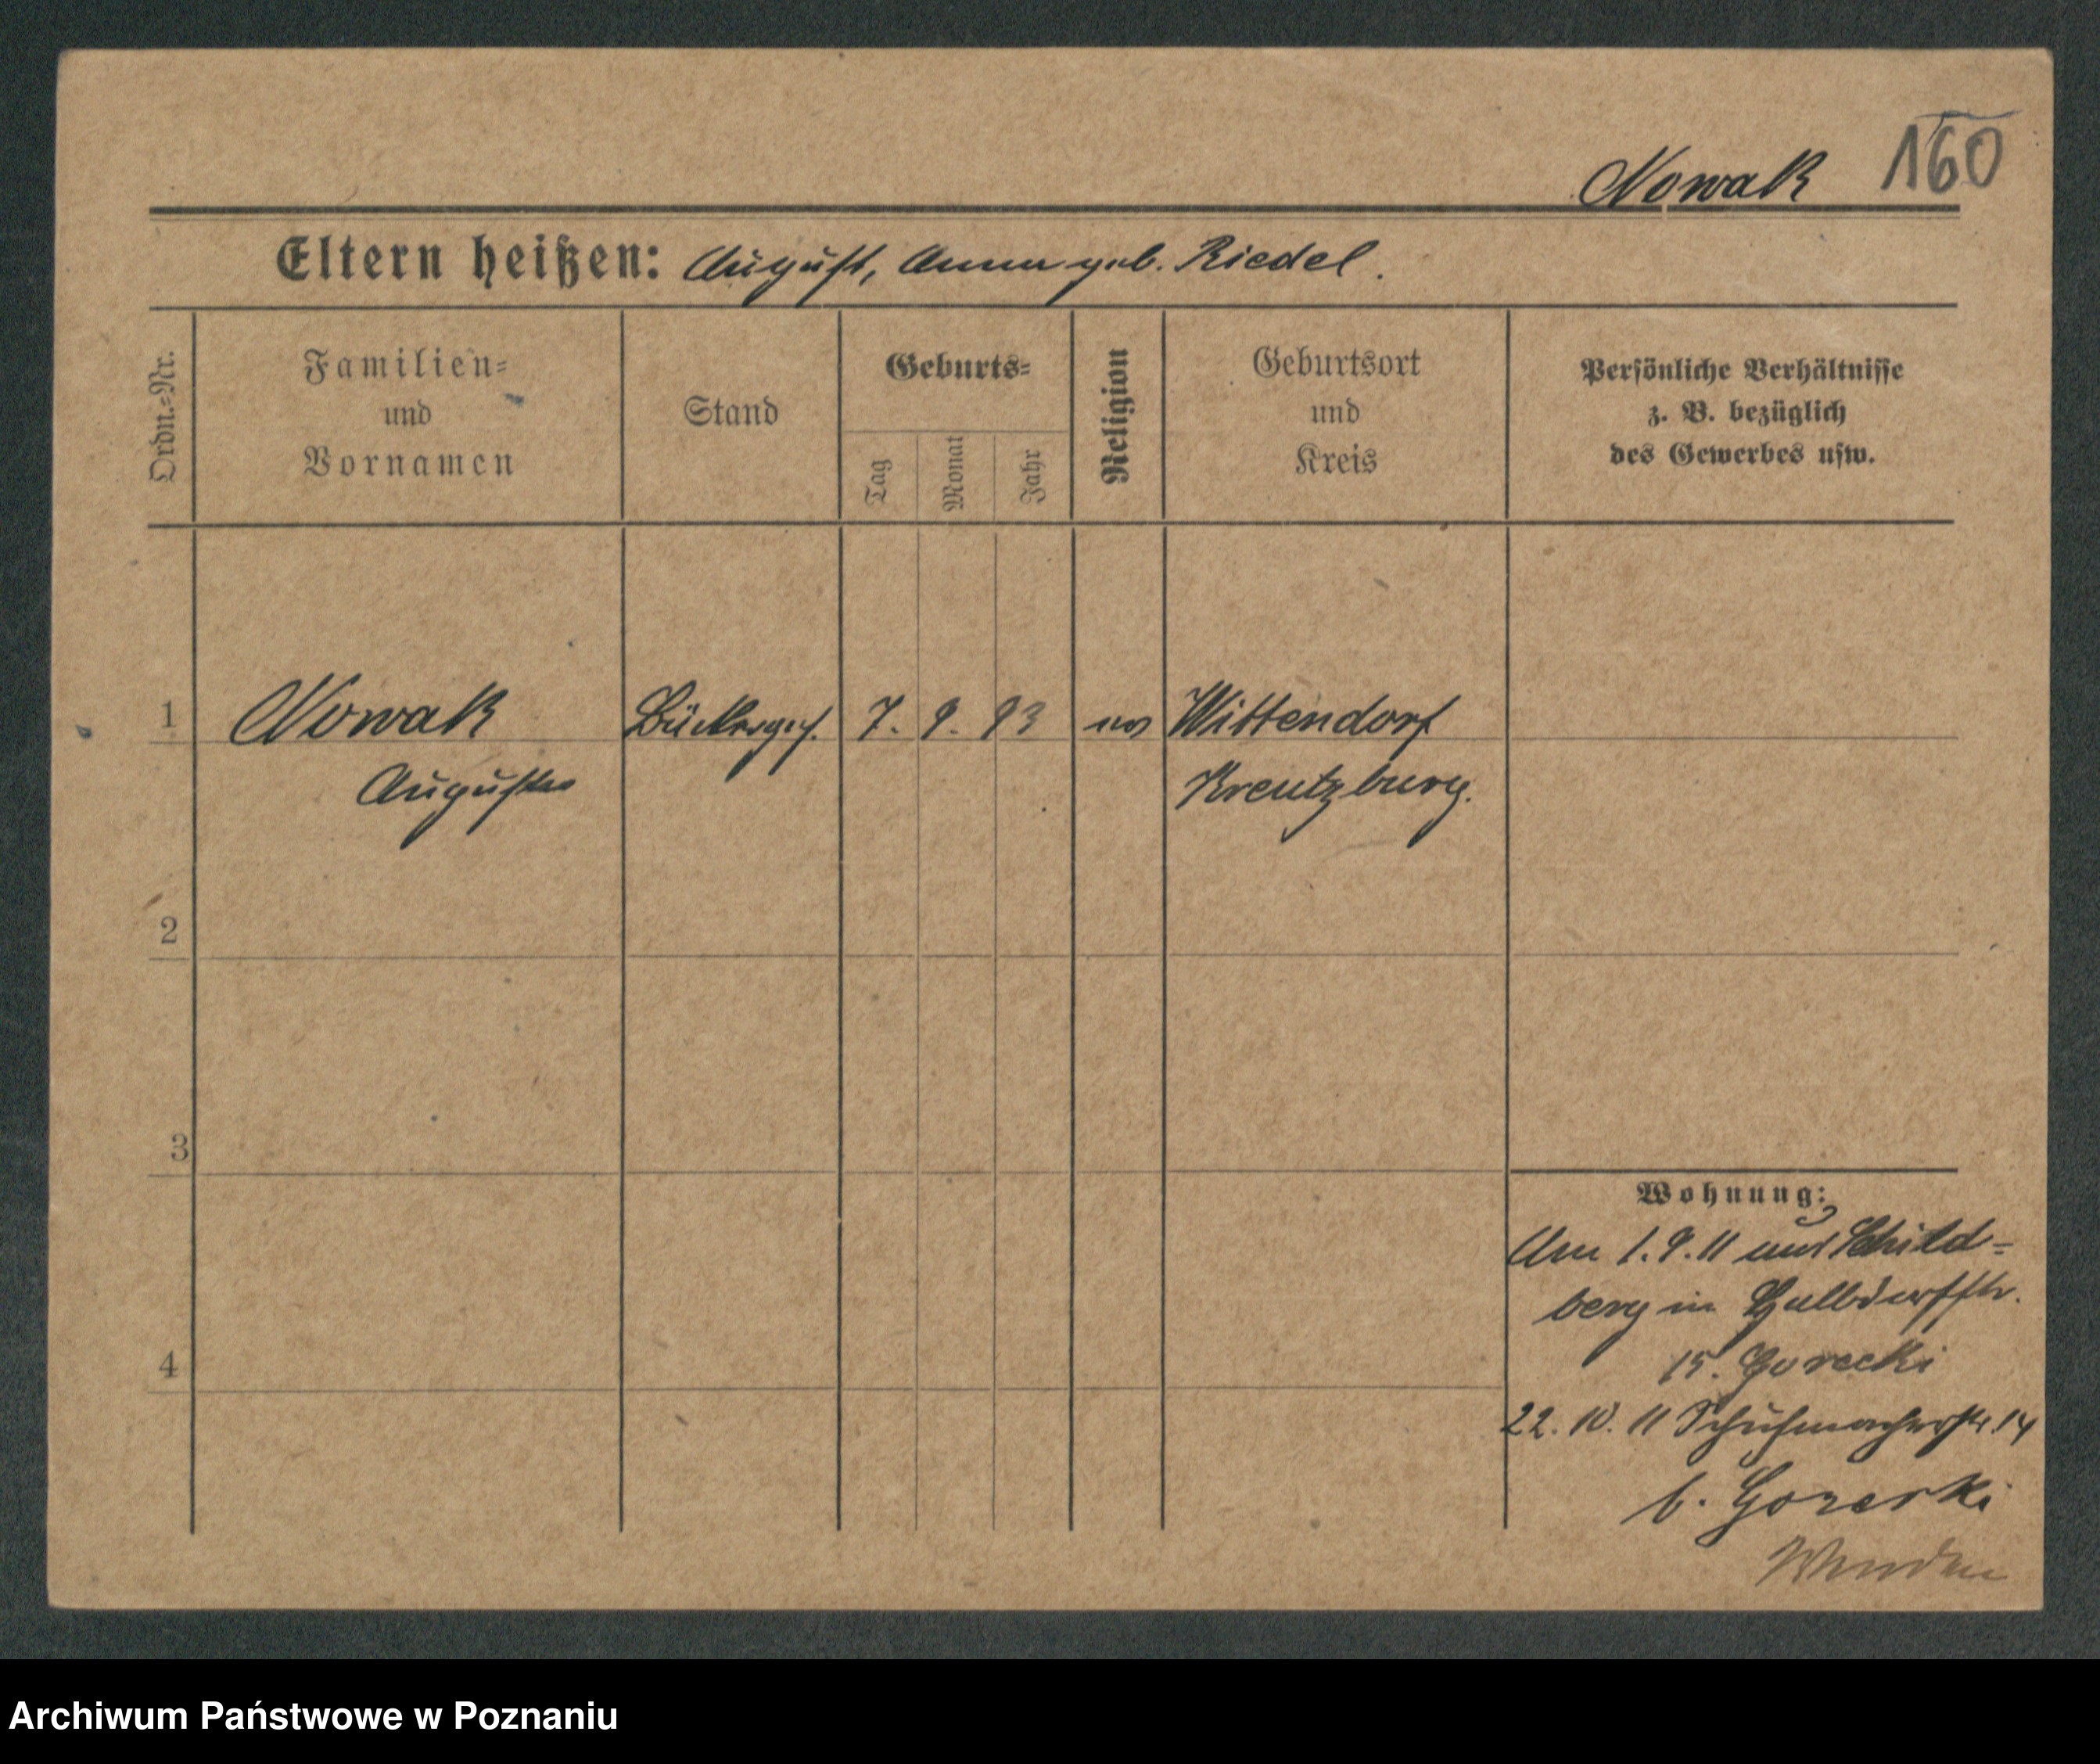 160
Nowak
Eltern heißen: August, Anna geb. Riedel.
Ordn.-Nr.
Familien-
und
Vornamen
Stand
Geburts-
Tag
Monat
Jahr
Religion
Geburtsort
und
Kreis
Persönliche Verhältnisse
z. B. bezüglich
des Gewerbes usw.
1 Nowak Bäckerges. 7. 9. 93 ev Wittendorf
August Kreutzburg.
2
3
4
Wohnung:
Am 1.9.11 aus Schild-
berg in Halbdorfstr.
15. Gorecki
22. 10. 11 Schuhmacherstr. 14
b. Gorecki
Wenden
Archiwum Państwowe w Poznaniu